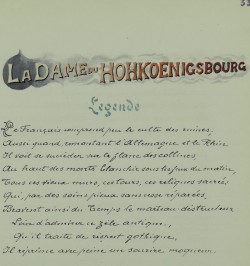 LA DAME DU HOHKOENIGSBOURG
Légende
Le Français comprend peu le culte des ruines,
Aussi quand, remontant l'Allemagne et le Rhin
Il voit se succéder sur le flanc des collines,
Au haut des monts blanchis sous les feux du matin,
Tous ces vieux murs, ces tours, ces reliques sacrées
Qui, par des soins pieux sans cesse réparées,
Bravent ainsi du temps le marteau destructeur
Loin d'admirer ce zèle antique,
Qu'il traite de respect gothique,
Il réprime avec peine un sourire moqueur.